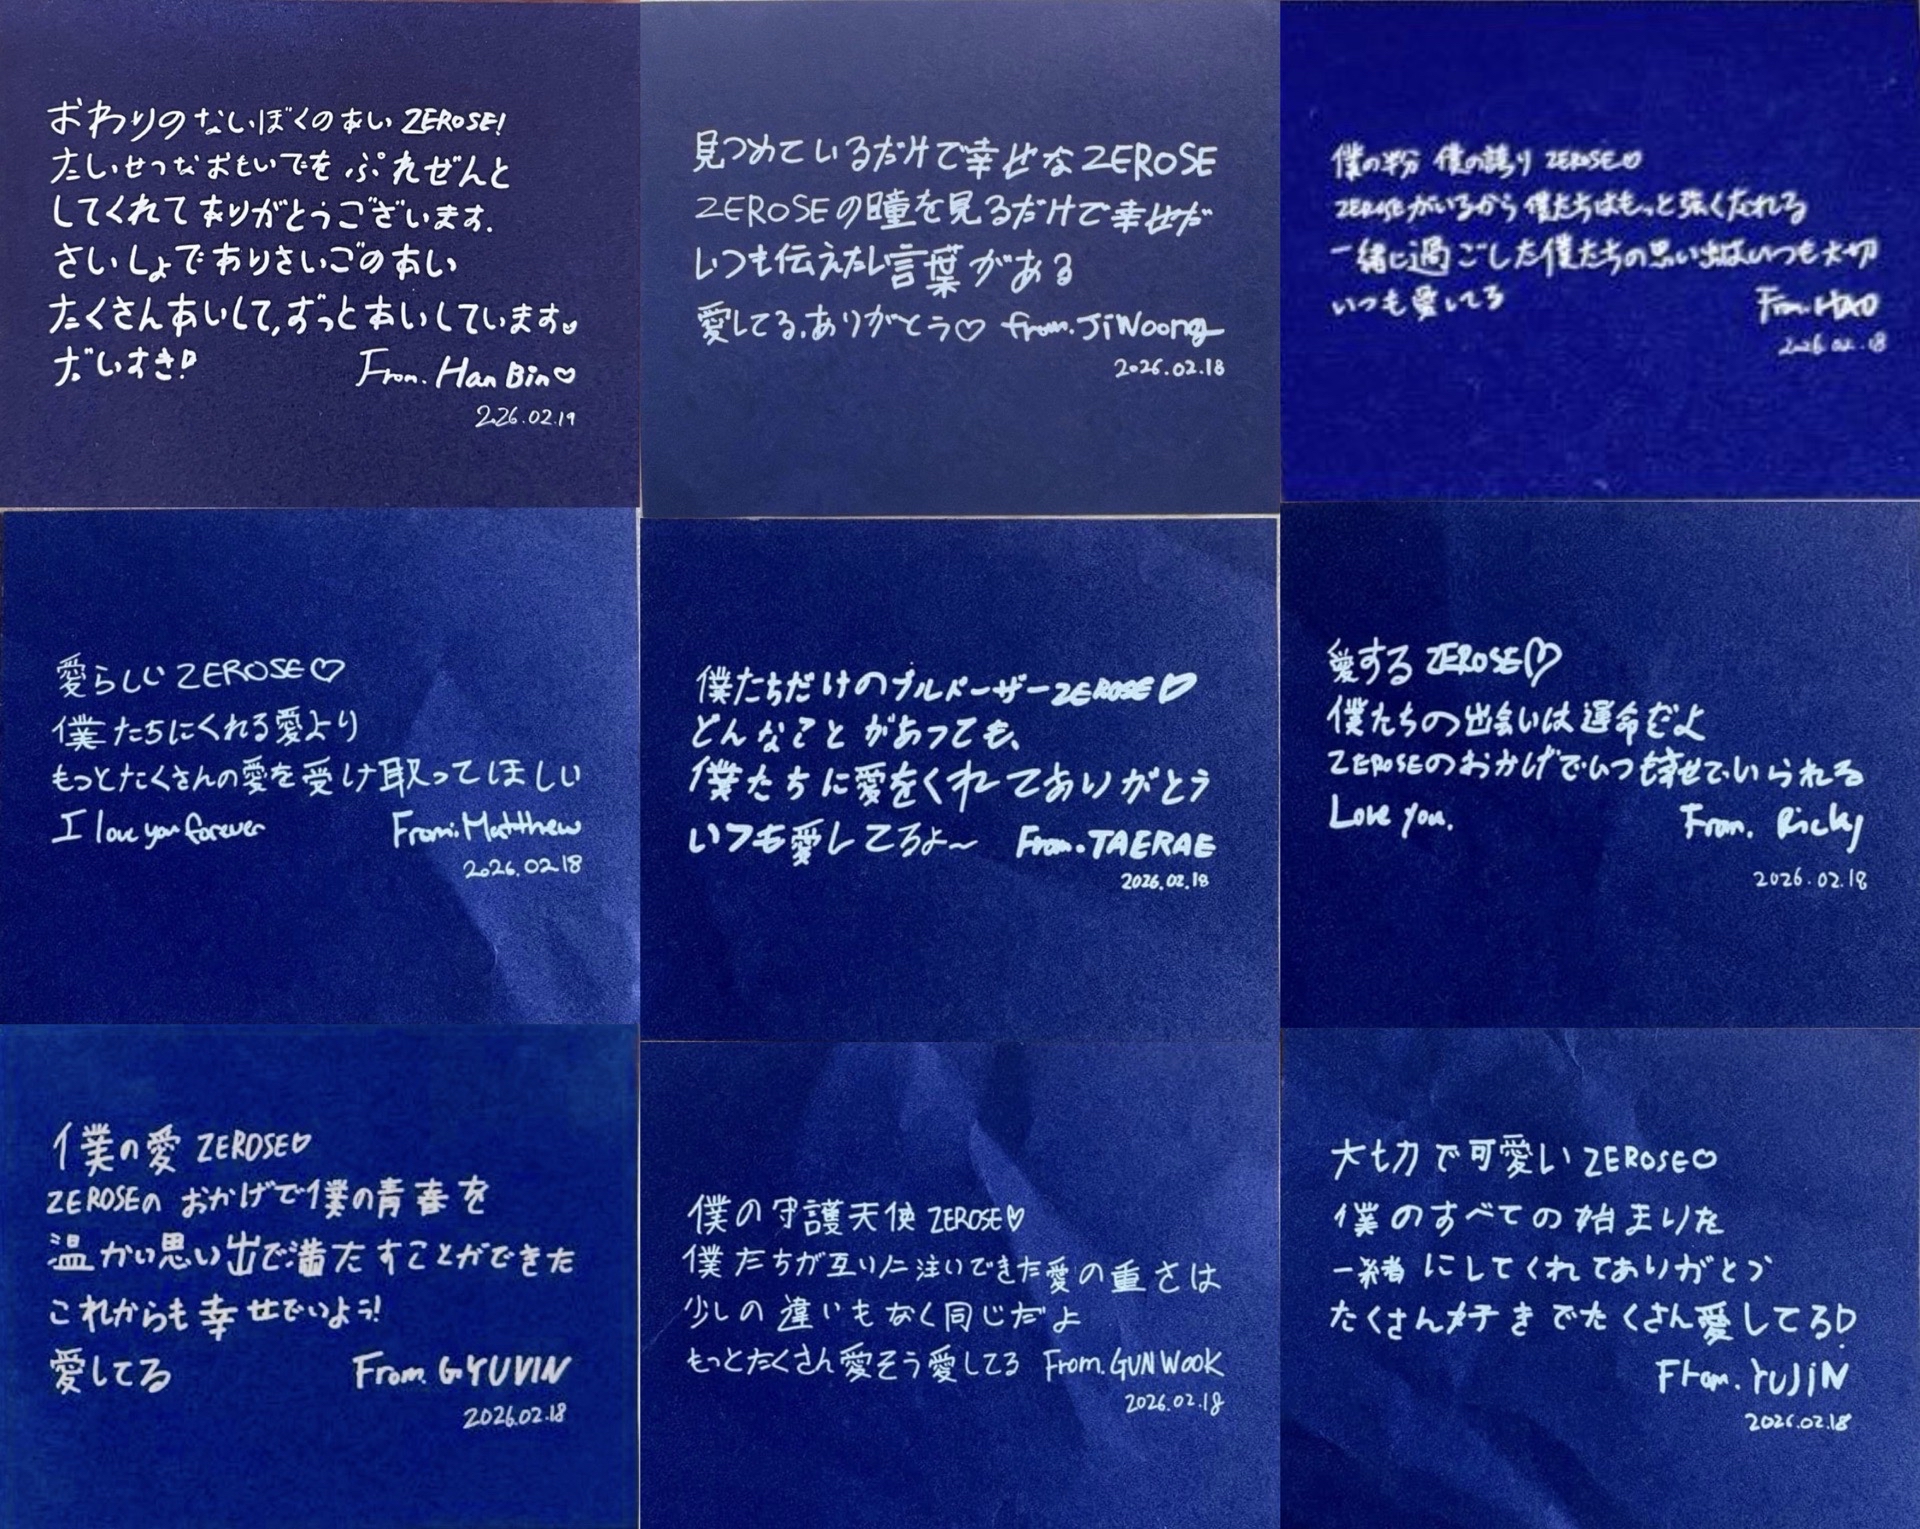 おわりのないぼくのあい ZEROSE!
たいせつなおもいでを ぷれぜんと
してくれてありがとうございます.
さいしょでありさいごのあい
たくさんあいして,ずっとあいしています♡
だいすき!
From. Han Bin♡
2026.02.19
見つめているだけで幸せなZEROSE
ZEROSEの瞳を見るだけで幸せだ
いつも伝えたい言葉がある
愛してる.ありがとう♡ from.JiWoong
2026.02.18
僕の半分 僕の誇り ZEROSE♡
ZEROSEがいるから僕たちはもっと強くなれる
一緒に過ごした僕たちの思い出はいつも大切
いつも愛してる From.HAO
2026.02.18
愛らしい ZEROSE♡
僕たちにくれる愛より
もっとたくさんの愛を受け取ってほしい
I love you forever From.Matthew
2026.02.18
僕たちだけのブルドーザーZEROSE♡
どんなことがあっても、
僕たちに愛をくれてありがとう
いつも愛してるよ～ From.TAERAE
2026.02.18
愛する ZEROSE♡
僕たちの出会いは運命だよ
ZEROSEのおかげでいつも幸せでいられる
Love you. From. Ricky
2026.02.18
僕の愛 ZEROSE♡
ZEROSEの おかげで僕の青春を
温かい思い出で満たすことができた
これからも幸せでいよう!
愛してる From. GYUVIN
2026.02.18
僕の守護天使 ZEROSE♡
僕たちが互いに注いできた愛の重さは
少しの違いもなく同じだよ
もっとたくさん愛そう愛してる From.GUN WOOK
2026.02.18
大切で可愛い ZEROSE♡
僕のすべての始まりを
一緒にしてくれてありがとう
たくさん好きでたくさん愛してる!
From. YUJIN
2026.02.18